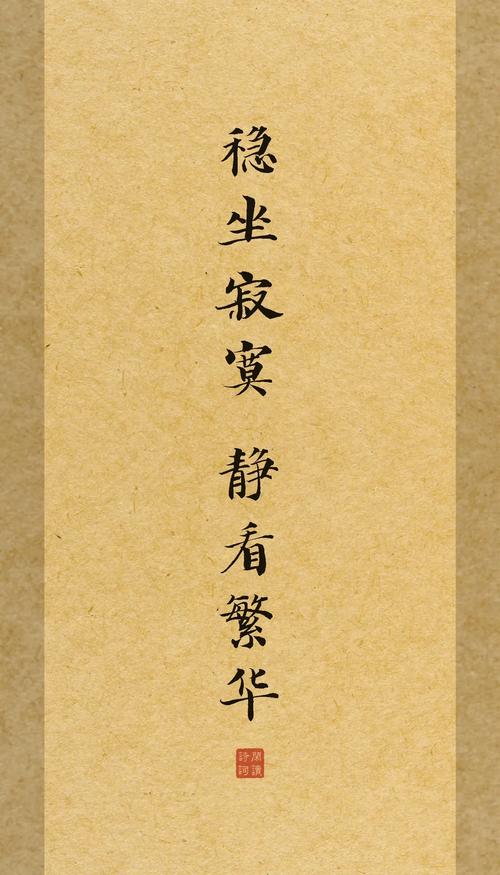 稳坐寂寞 静看繁华
閑讀詩詞